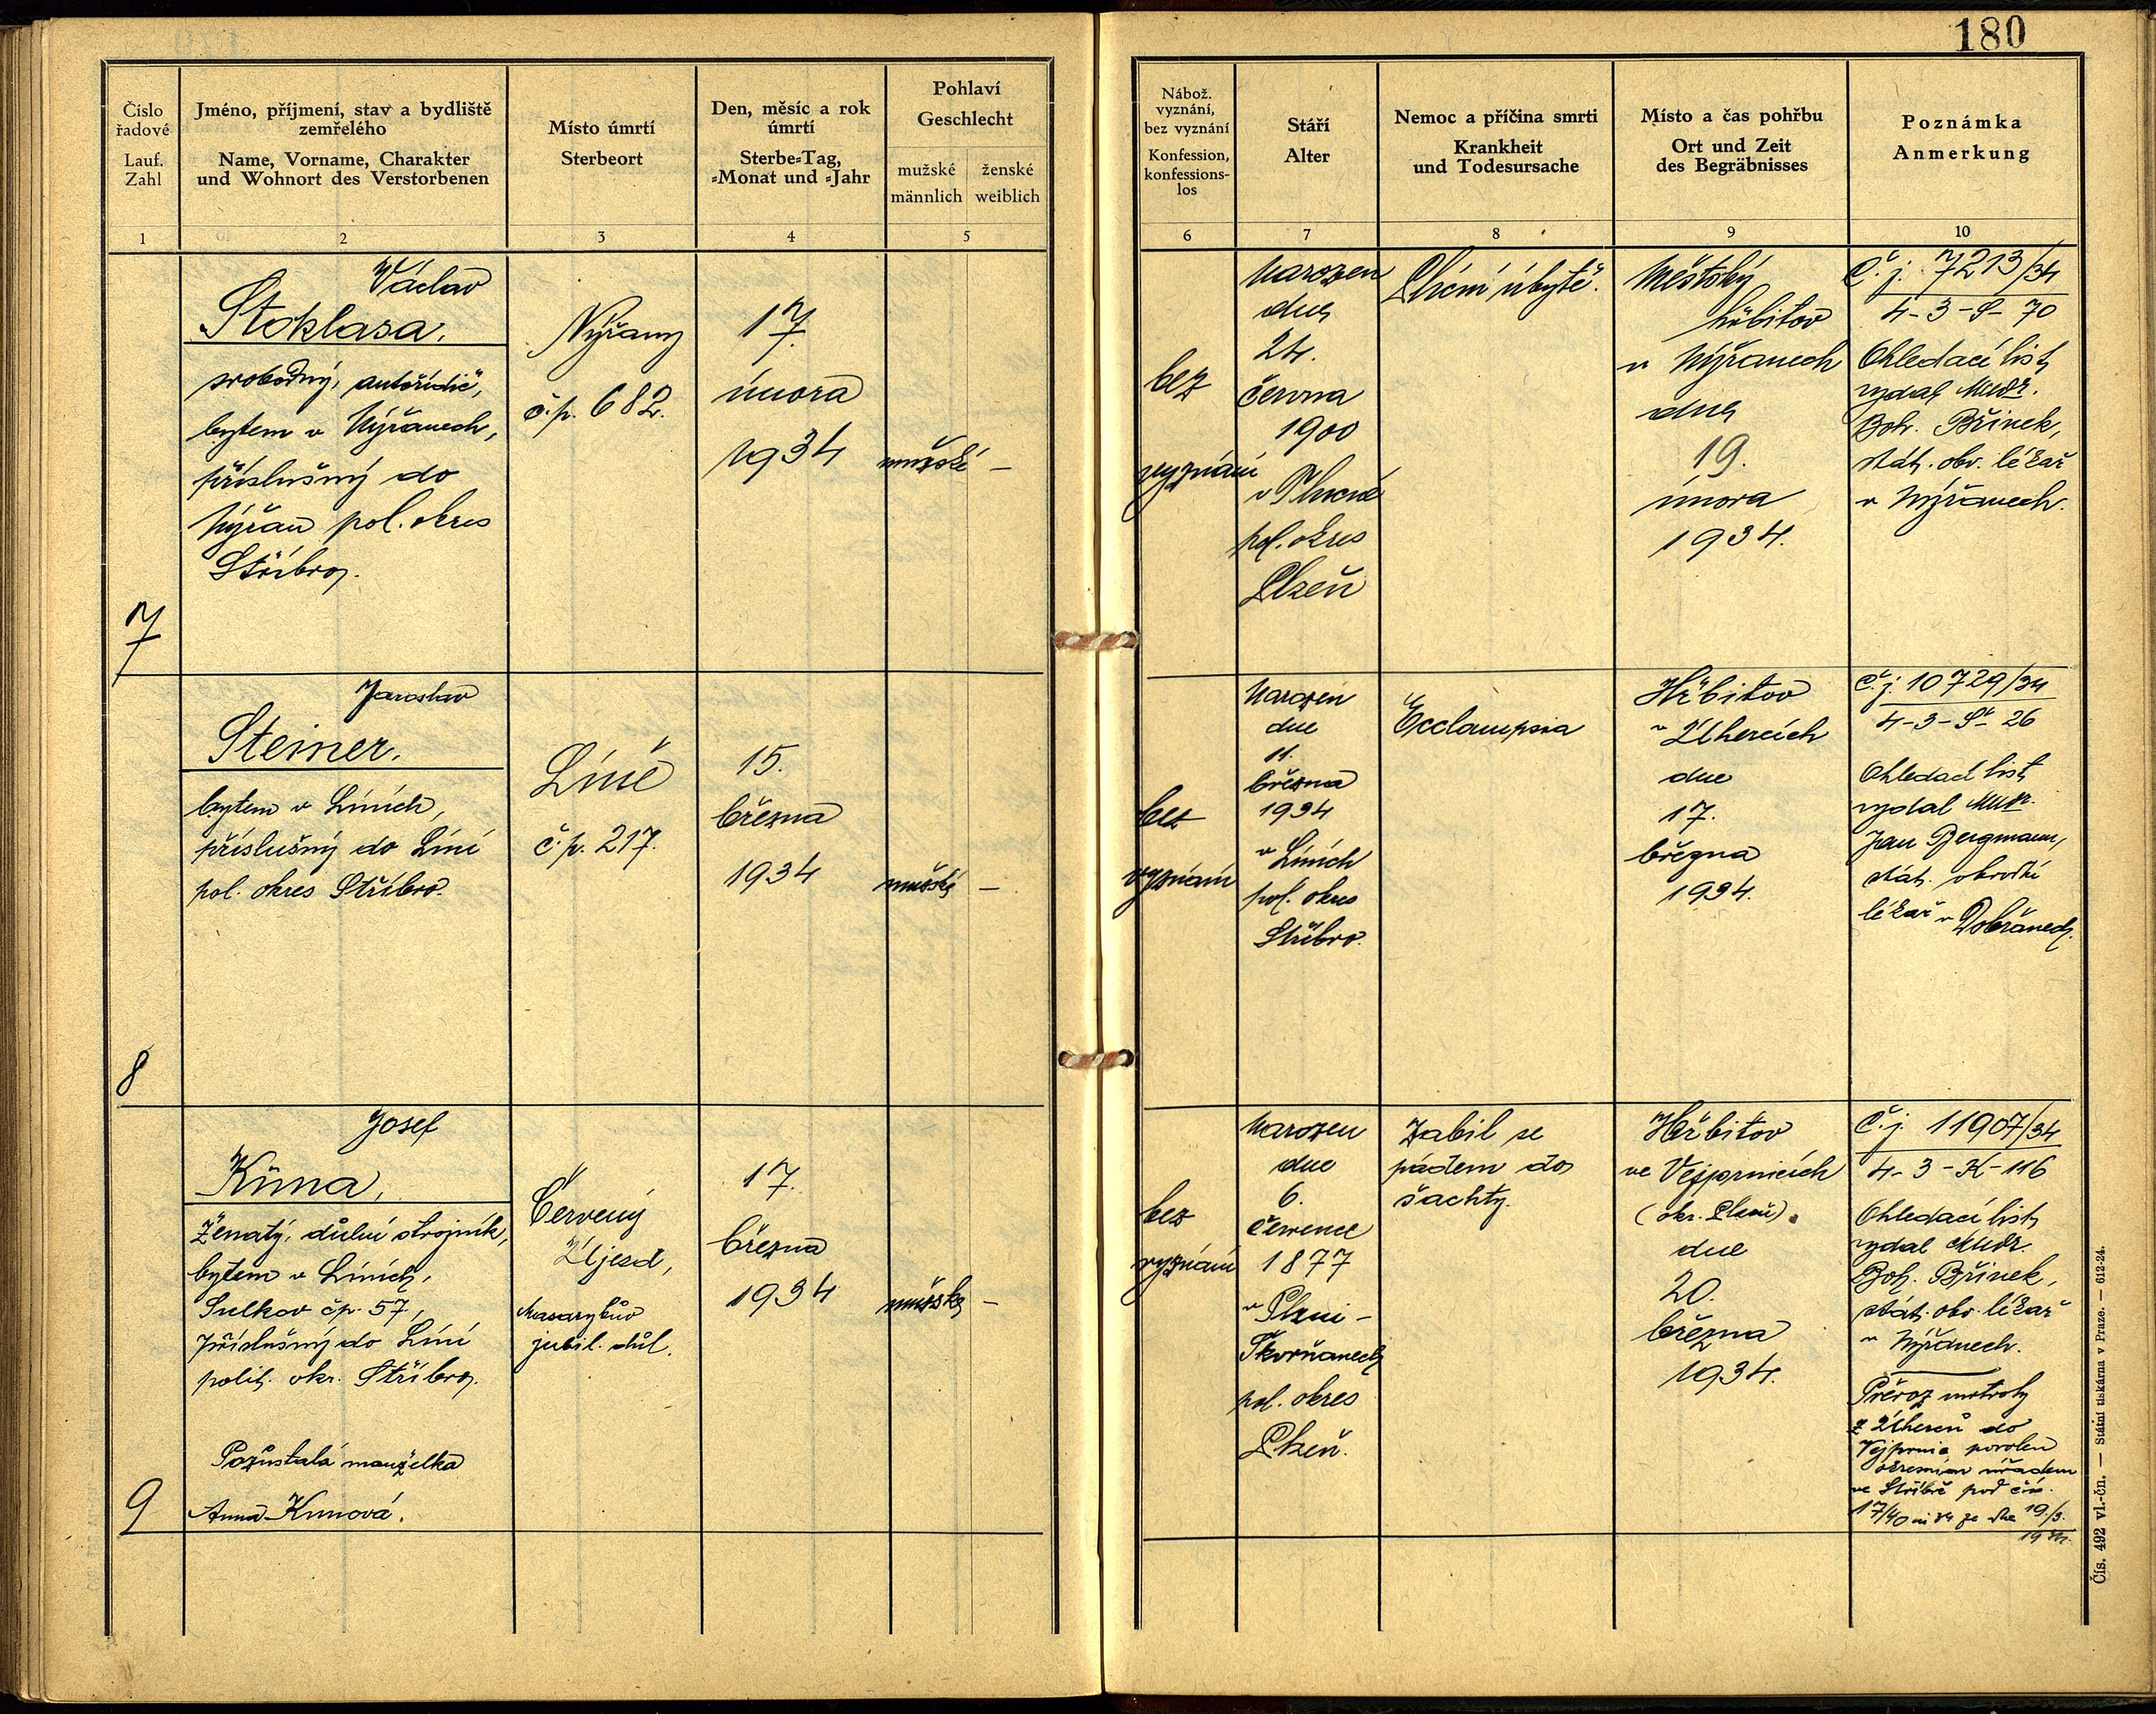 180
Číslo
řadové
Lauf.
Zahl
Jméno, příjmení, stav a bydliště
zemřelého
Name, Vorname, Charakter
und Wohnort des Verstorbenen
Místo úmrtí
Sterbeort
Den, měsíc a rok
úmrtí
Sterbe-Tag,
-Monat und -Jahr
Pohlaví
Geschlecht
mužské
männlich
ženské
weiblich
Nábož.
vyznání,
bez vyznání
Konfession,
konfessions-
los
Stáří
Alter
Nemoc a příčina smrti
Krankheit
und Todesursache
Místo a čas pohřbu
Ort und Zeit
des Begräbnisses
Poznámka
Anmerkung
1
2
3
4
5
6
7
8
9
10
7
Václav
Stoklasa.
svobodný, autořidič,
bytem v Nýřanech,
příslušný do
Nýřan pol. okres
Stříbro.
Nýřany
č.p. 682.
17.
února
1934
mužské –
bez
vyznání
Narozen
dne
24.
června
1900
v
pol. okres
Plzeň
Plicní úbytě.
Městský
hřbitov
v Nýřanech
dne
19.
února
1934.
Č. j. 7213/34
4-3-S-70
Ohledací list
vydal MUDr.
Boh. Břinek,
stát. obv. lékař
v Nýřanech.
8
Jaroslav
Steiner.
bytem v Líních,
příslušný do Líní
pol. okres Stříbro.
Líně
č.p. 217.
15.
března
1934
mužské –
bez
vyznání
Narozen
dne
11.
března
1934
v Líních
pol. okres
Stříbro.
Ecclampsia
Hřbitov
v Úhercích
dne
17.
března
1934.
Č. j. 10729/34
4-3-S-26
Ohledací list
vydal MUDr.
Jan Bergmann,
stát. obvodní
lékař v Dobřanech.
9
Josef
Kůna,
Ženatý, důlní strojník,
bytem v Líních,
Sulkov čp. 57,
příslušný do Líní
polit. okr. Stříbro.
Pozůstalá manželka
Anna Kunová.
Červený
Újezd,
Masarykův
jubil. důl.
17.
března
1934
mužské –
bez
vyznání
Narozen
dne
6.
července
1877
v Plzni –
Škvrňanech
pol. okres
Plzeň.
Zabil se
pádem do
šachty.
Hřbitov
ve Vejprnicích
(okr. Plzeň).
dne
20.
března
1934.
Č. j. 11907/34
4-3-K-116
Ohledací list
vydal MUDr.
Boh. Břinek,
stát. obv. lékař
v Nýřanech.
Převoz mrtvoly
z Úherců do
Vejprnic povolen
okresním úřadem
ve Stříbře pod čís.
17/40 ze dne 19./3.
1934.
Čís. 492 vl.-čn. — Státní tiskárna v Praze. — 612-24.